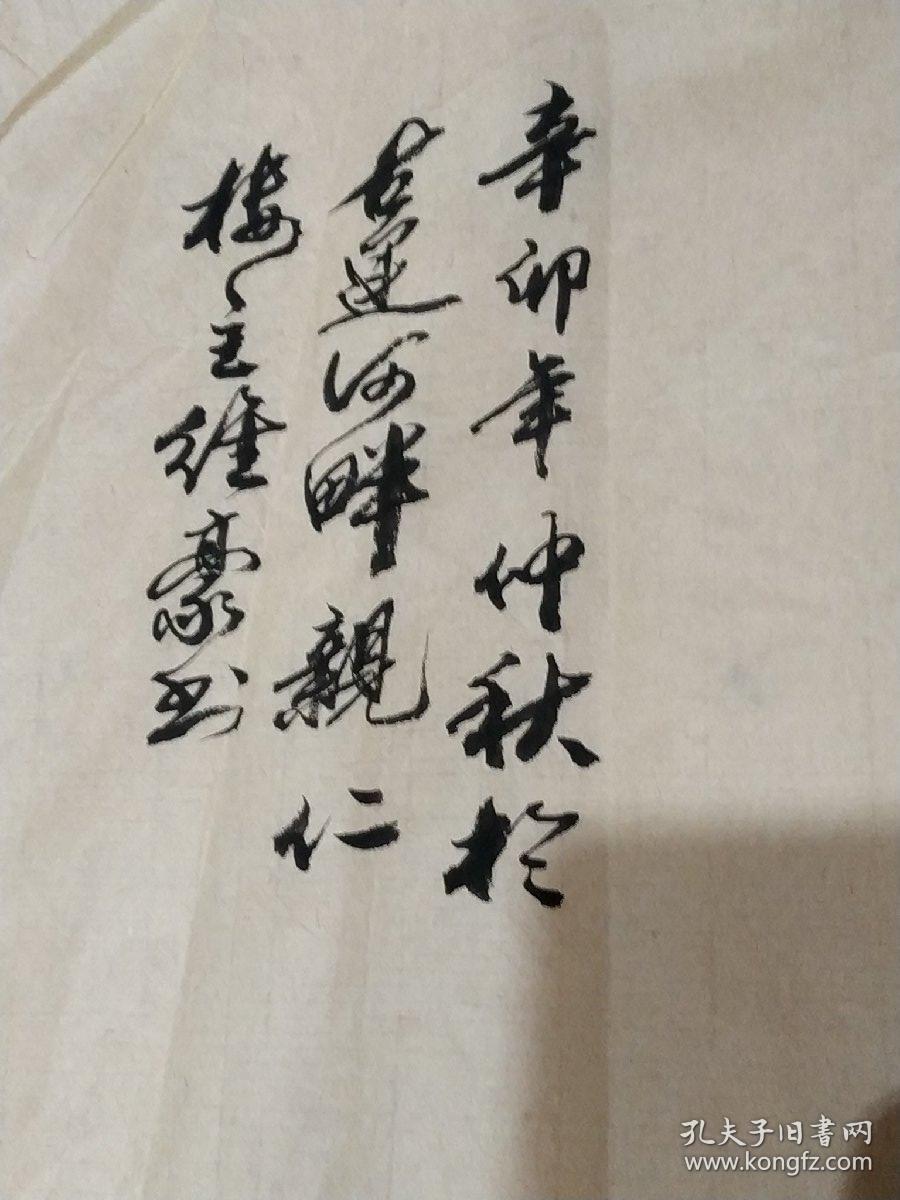 辛卯年仲秋於
古運河畔親仁
楼主維豪書
孔夫子旧書网
www.kongfz.com